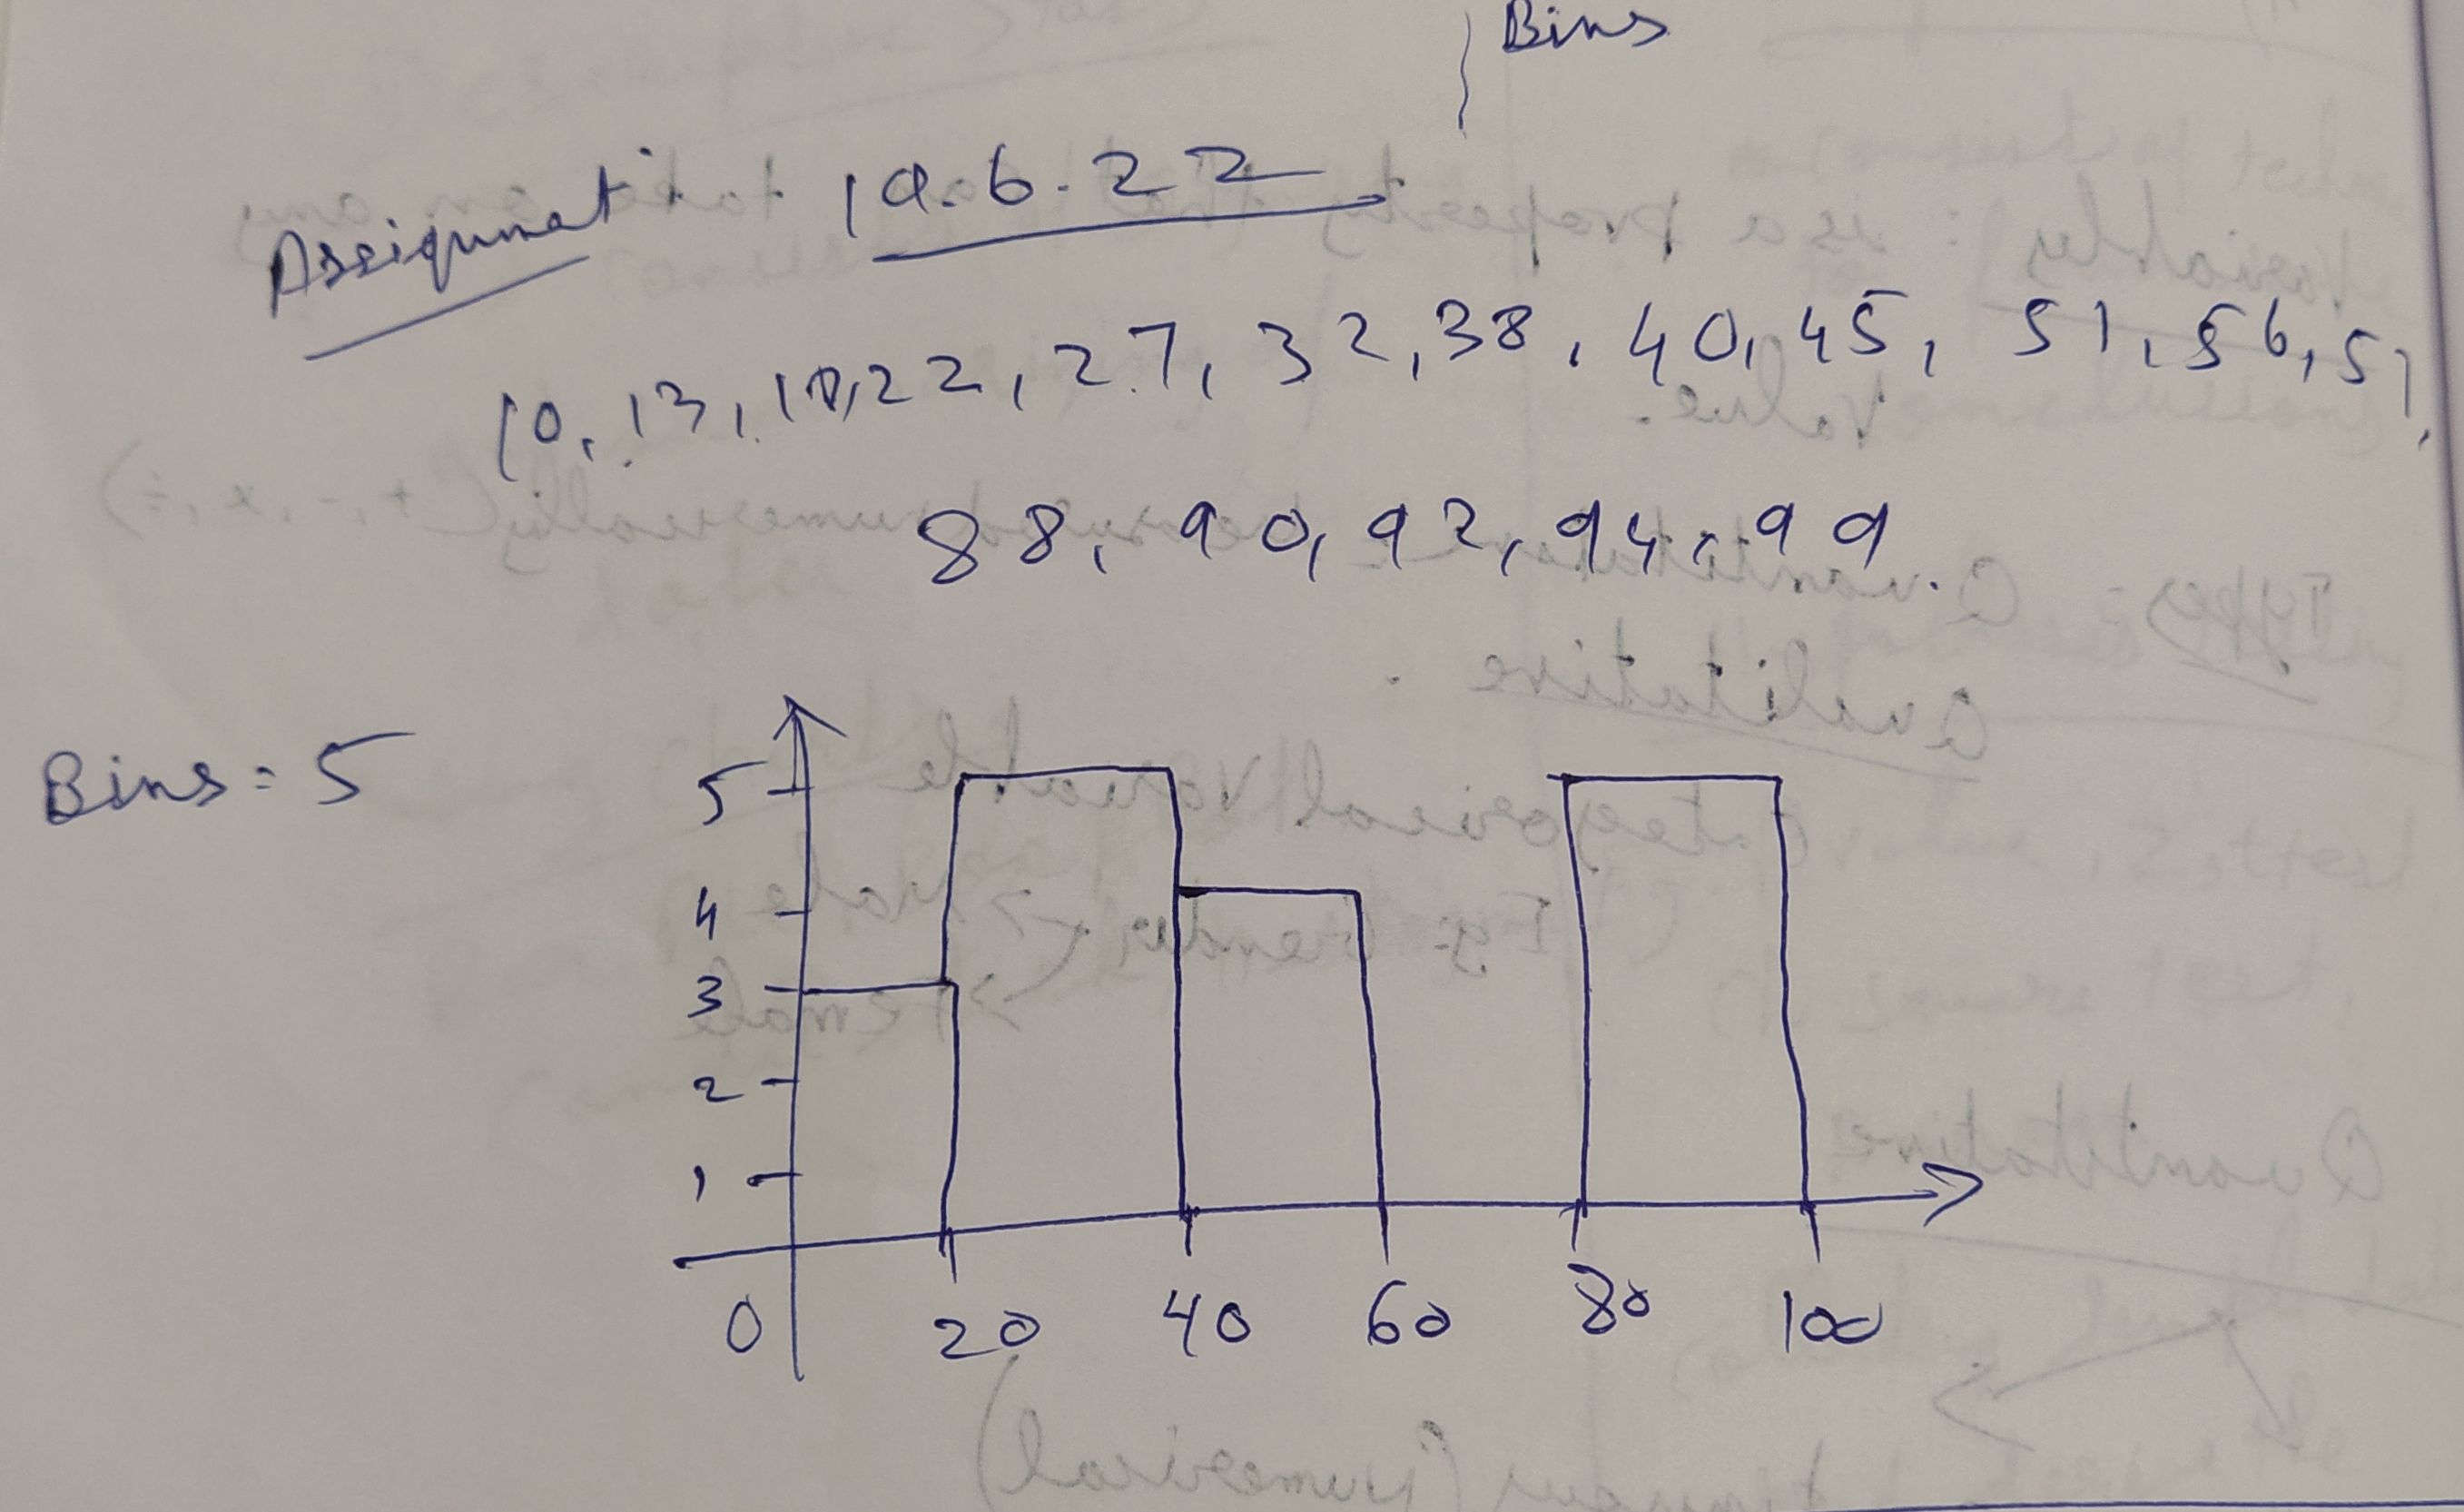 Bins
Assignmet 19.6.22
10, 13, 18, 22, 27, 32, 38, 40, 45, 51, 56, 57,
88, 90, 92, 94, 99.
Bins = 5
5
4
3
2
1
0 20 40 60 80 100